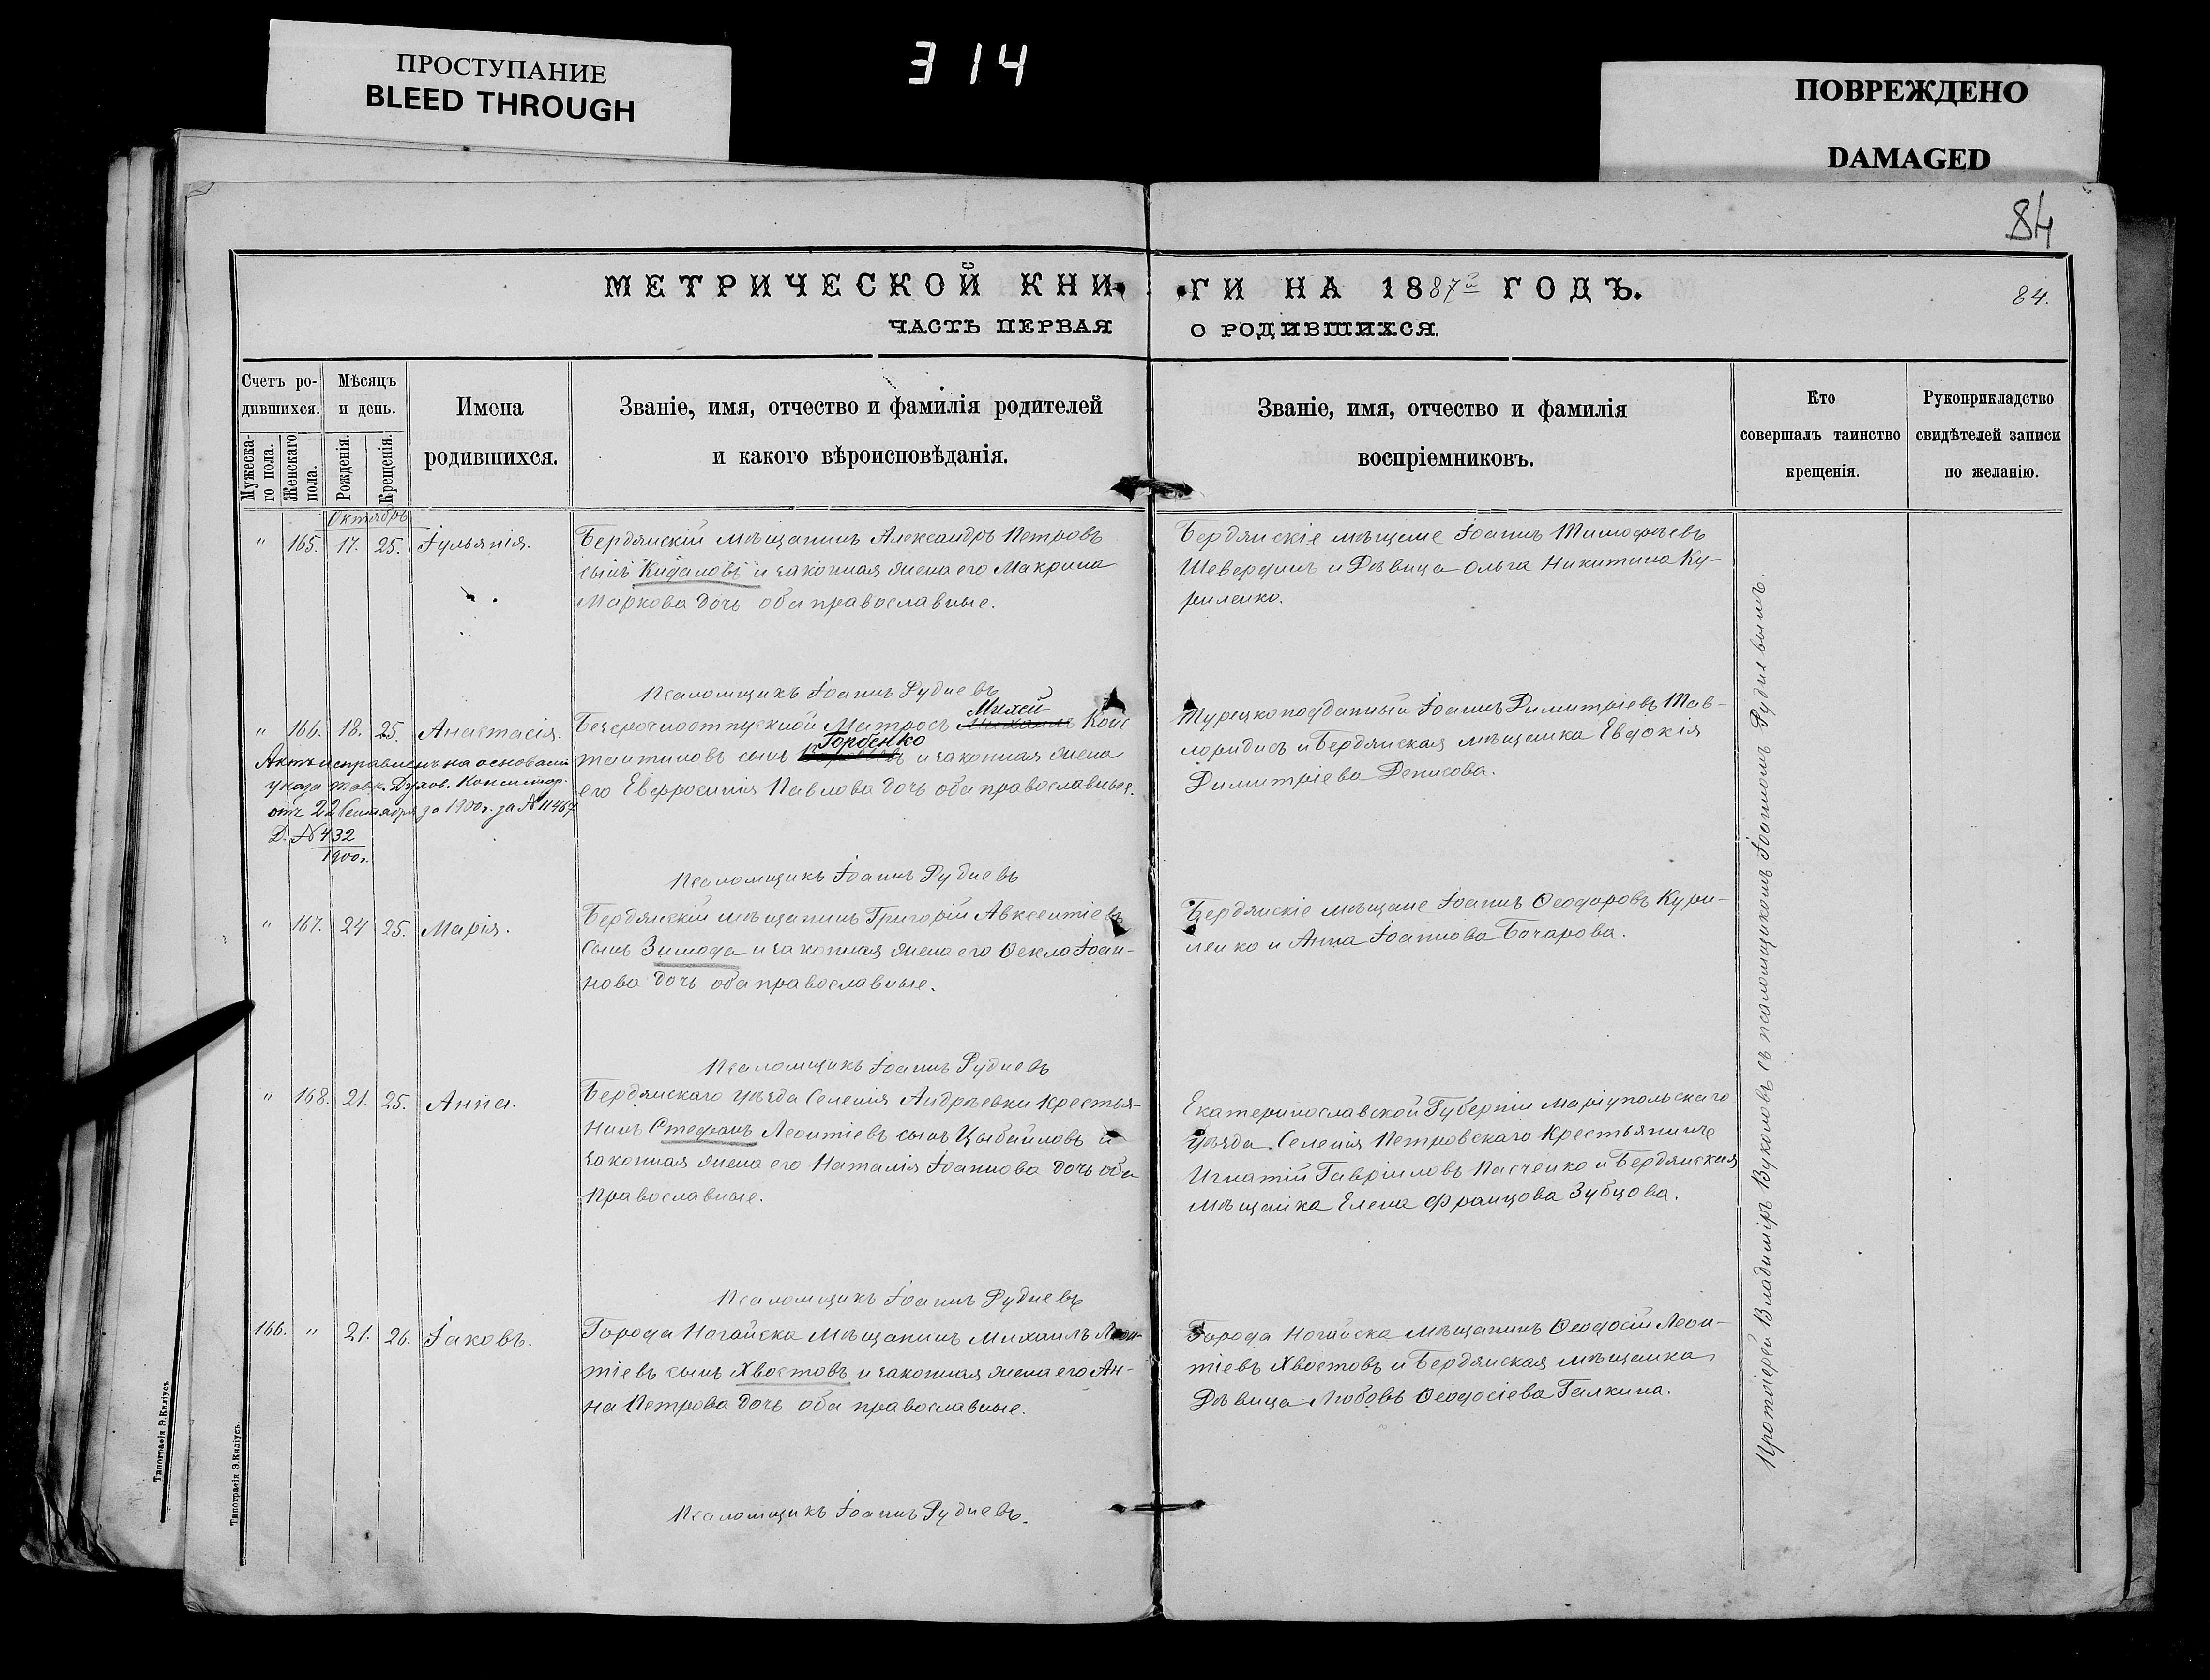 ПРОСТУПАНИЕ
BLEED THROUGH
314
ПОВРЕЖДЕНО
DAMAGED
84
МЕТРИЧЕСКОЙ КНИ-
ГИ НА 1887й ГОДЪ.
84.
ЧАСТЬ ПЕРВАЯ
О РОДИВШИХСЯ.
Счетъ ро-
дившихся.
Мужеска-
го пола.
Женскаго
пола.
Мѣсяцъ
и день.
Рожденія.
Крещенія.
Имена
родившихся.
Званіе, имя, отчество и фамилія родителей
и какого вѣроисповѣданія.
Званіе, имя, отчество и фамилія
воспріемниковъ.
Кто
совершалъ таинство
крещенія.
Рукоприкладство
свидѣтелей записи
по желанію.
Октябрь
" 165. 17. 25. Іульянія.
Бердянскій мѣщанинъ Александръ Петровъ
сынъ Кидаловъ и законная жена его Макрина
Маркова дочь оба православные.
Бердянскіе мѣщане Іоаннъ Тимофѣевъ
Шевердинъ и Дѣвица Ольга Никитина Ку-
риленко.
Псаломщикъ Іоаннъ Рудневъ
" 166. 18. 25. Анастасія.
Актъ исправленъ на основаніи
указа Тавр. Духов. Консистор.
отъ 22 Сентября за 1900 г. за № 11467
Д. № 432
1900 г.
Безсрочноотпускной Матросъ Михей Конс
тантиновъ сынъ Горбенко и законная жена
его Евфросинія Павлова дочь оба православные.
Турецкоподданый Іоаннъ Димитріевъ Мав-
лоридисъ и Бердянская мѣщанка Евдокія
Димитріева Денисова.
Псаломщикъ Іоаннъ Рудневъ
" 167. 24 25. Марія.
Бердянскій мѣщанинъ Григорій Авксентіевъ
сынъ Зимода и законная жена его Ѳекла Іоан-
нова дочь оба православные.
Бердянскіе мѣщане Іоаннъ Ѳеодоровъ Кури-
ленко и Анна Іоаннова Бочарова.
Псаломщикъ Іоаннъ Рудневъ
" 168. 21. 25. Анна.
Бердянскаго уѣзда Селенія Андрѣевки Крестья-
нинъ Стефанъ Леонтіевъ сынъ Цыбайловъ и
законная жена его Наталія Іоаннова дочь оба
Православные.
Екатеринославской Губерніи Маріупольскаго
уѣзда Селенія Петровскаго Крестьянинъ
Игнатій Гавріиловъ Пасченко и Бердянская
мѣщанка Елена Францова Зубцова.
Псаломщикъ Іоаннъ Рудневъ
166. " 21. 26. Іаковъ.
Города Ногайска Мѣщанинъ Михаилъ Леон-
тіевъ сынъ Хвостовъ и законная жена его Ан-
на Петрова дочь оба православные.
Города Ногайска мѣщанинъ Ѳеодосій Леон-
тіевъ Хвостовъ и Бердянская мѣщанка
Дѣвица Любовь Ѳеодосіева Галкина.
Псаломщикъ Іоаннъ Рудневъ.
Протоіерей Владиміръ Вуколовъ съ псаломщикомъ Іоанномъ Рудневымъ.
Типографія Э.Киліусъ
Типографія Э.Киліусъ.